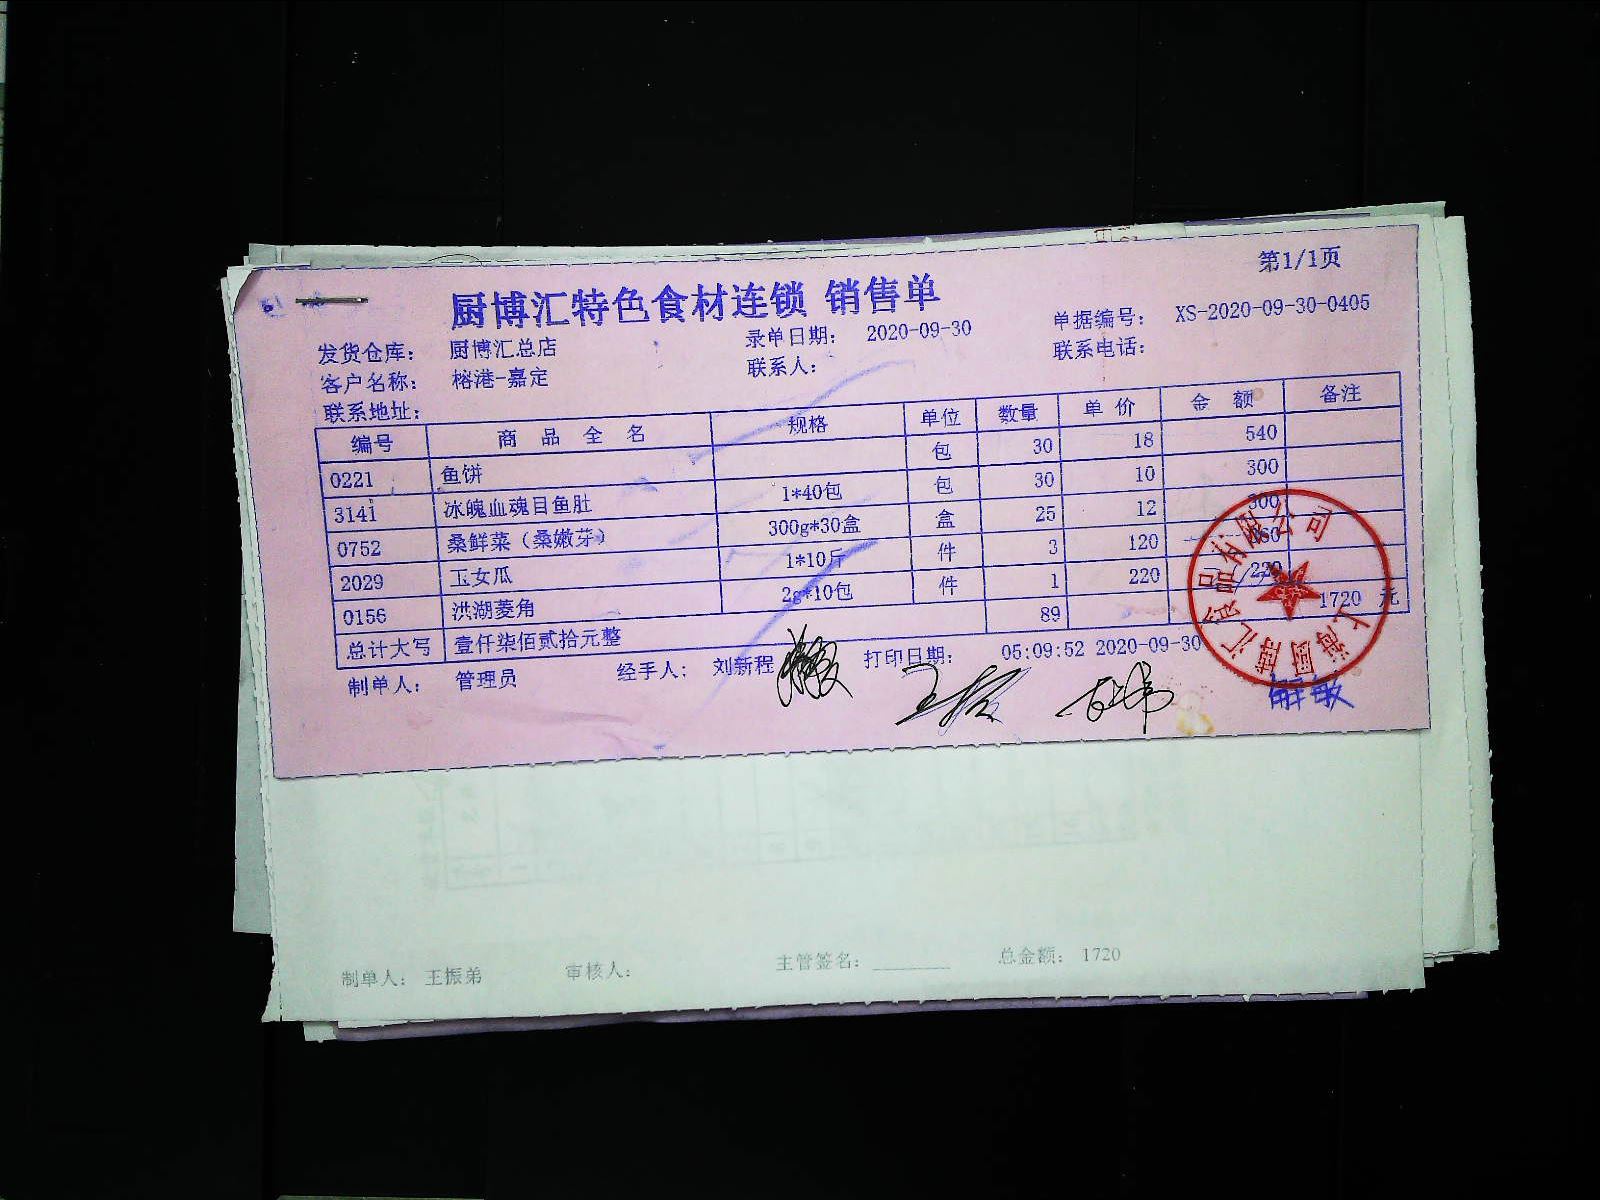 第1/1页
厨博汇特色食材连锁 销售单
发货仓库： 厨博汇总店 录单日期： 2020-09-30 单据编号： XS-2020-09-30-0405
客户名称： 榕港-嘉定 联系人： 联系电话：
联系地址：
编号 商品全名 规格 单位 数量 单价 金额 备注
0221 鱼饼 包 30 18 540
3141 冰魄血魂目鱼肚 1*40包 包 30 10 300
0752 桑鲜菜（桑嫩芽） 300g*30盒 盒 25 12 300
2029 玉女瓜 1*10斤 件 3 120 360
0156 洪湖菱角 2g*10包 件 1 220 220
总计大写 壹仟柒佰贰拾元整 89 1720 元
制单人： 管理员 经手人： 刘新程 打印日期： 05:09:52 2020-09-30
上海厨博汇食品有限公司
解敏
制单人： 王振弟 审核人： 主管签名：________ 总金额： 1720